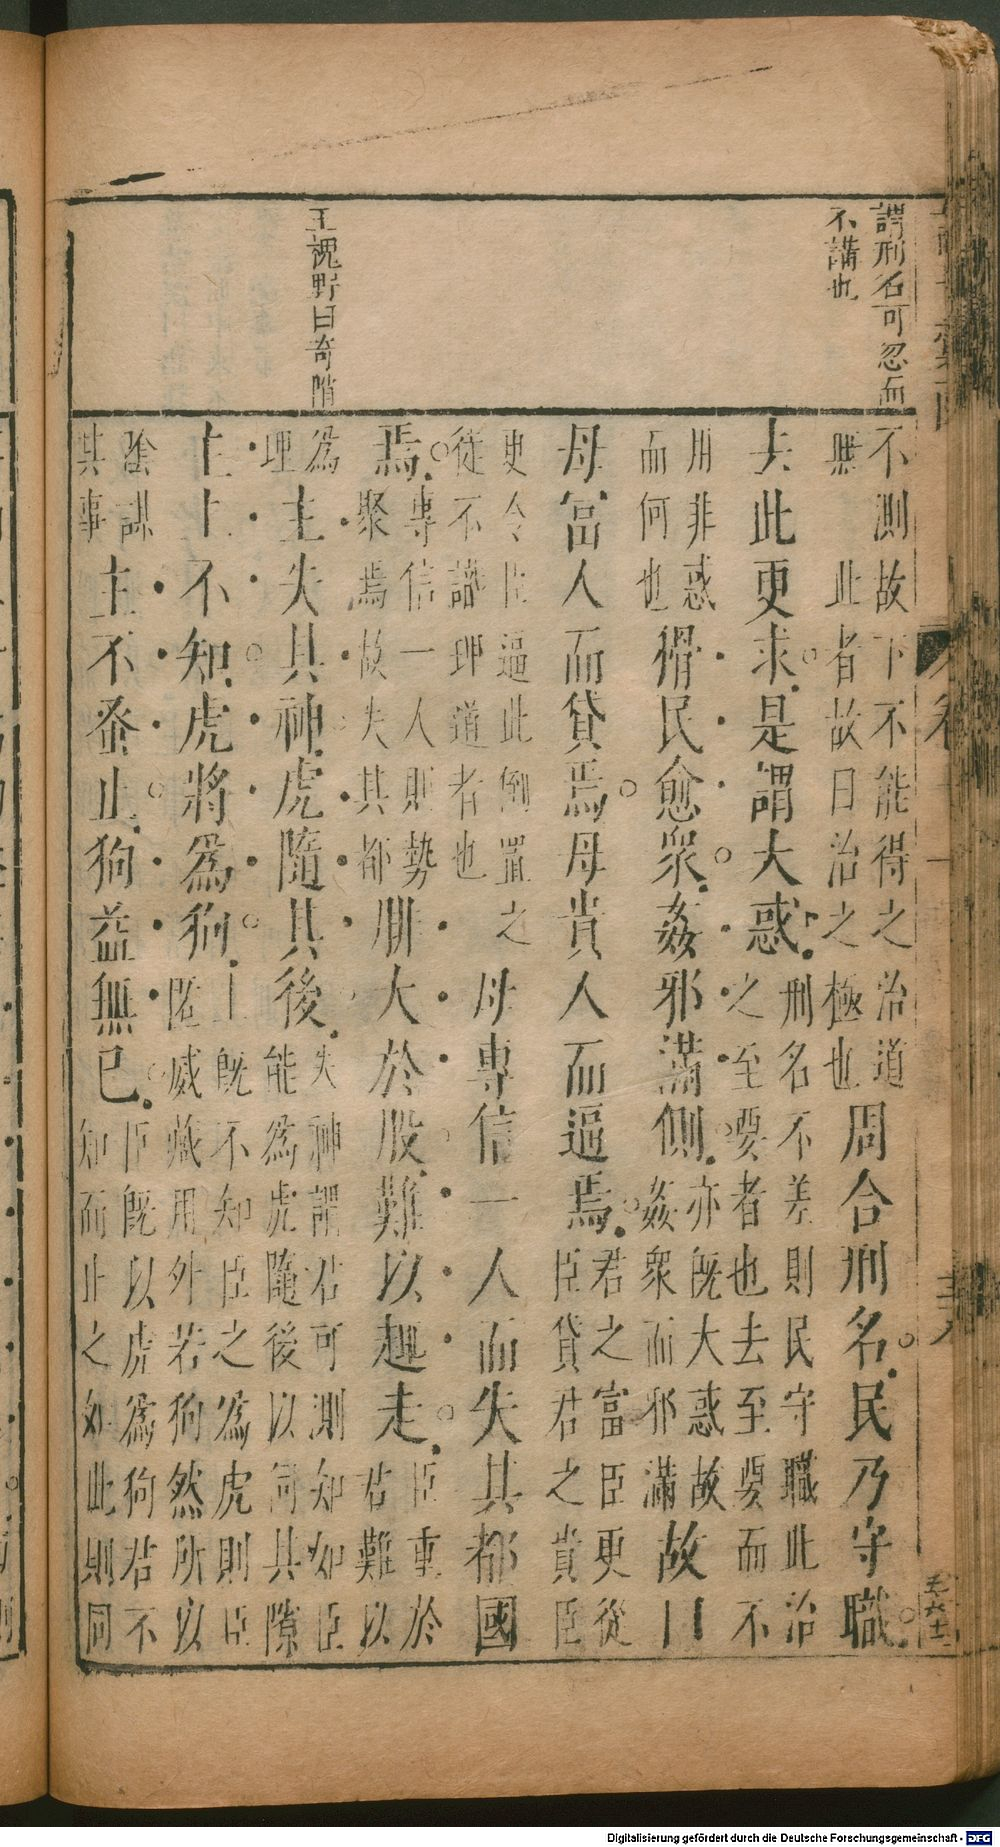 謂刑名可忽而
不講也
王槐野曰奇陗
不測故下不能得之治道
無　此者故曰治之極也
周合刑名民乃守職
去此更求是謂大惑
刑名不差則民守職此治
之至要者也去至要而不
用非惑
而何也
猾民愈衆姦邪滿側
亦旣大惑故
姦衆而邪滿
故曰
母富人而貸焉母貴人而逼焉
君之富臣更從
臣貸君之貴臣
更令臣逼此倒置之
從不識理道者也
母專信一人而失其都國
焉
專信一人則勢
聚焉故失其都
腓大於股難以趣走
臣重於
君難以
爲
理
主失其神虎隨其後
失神謂君可測知如臣
能爲虎隨後以伺其隙
主上不知虎將爲狗
上旣不知臣之爲虎則臣
匿威藏用外若狗然所以
陰謀
其事
主不蚤止狗益無已
臣旣以虎爲狗君不
知而止之如此則同
Digitalisierung gefördert durch die Deutsche Forschungsgemeinschaft - DFG